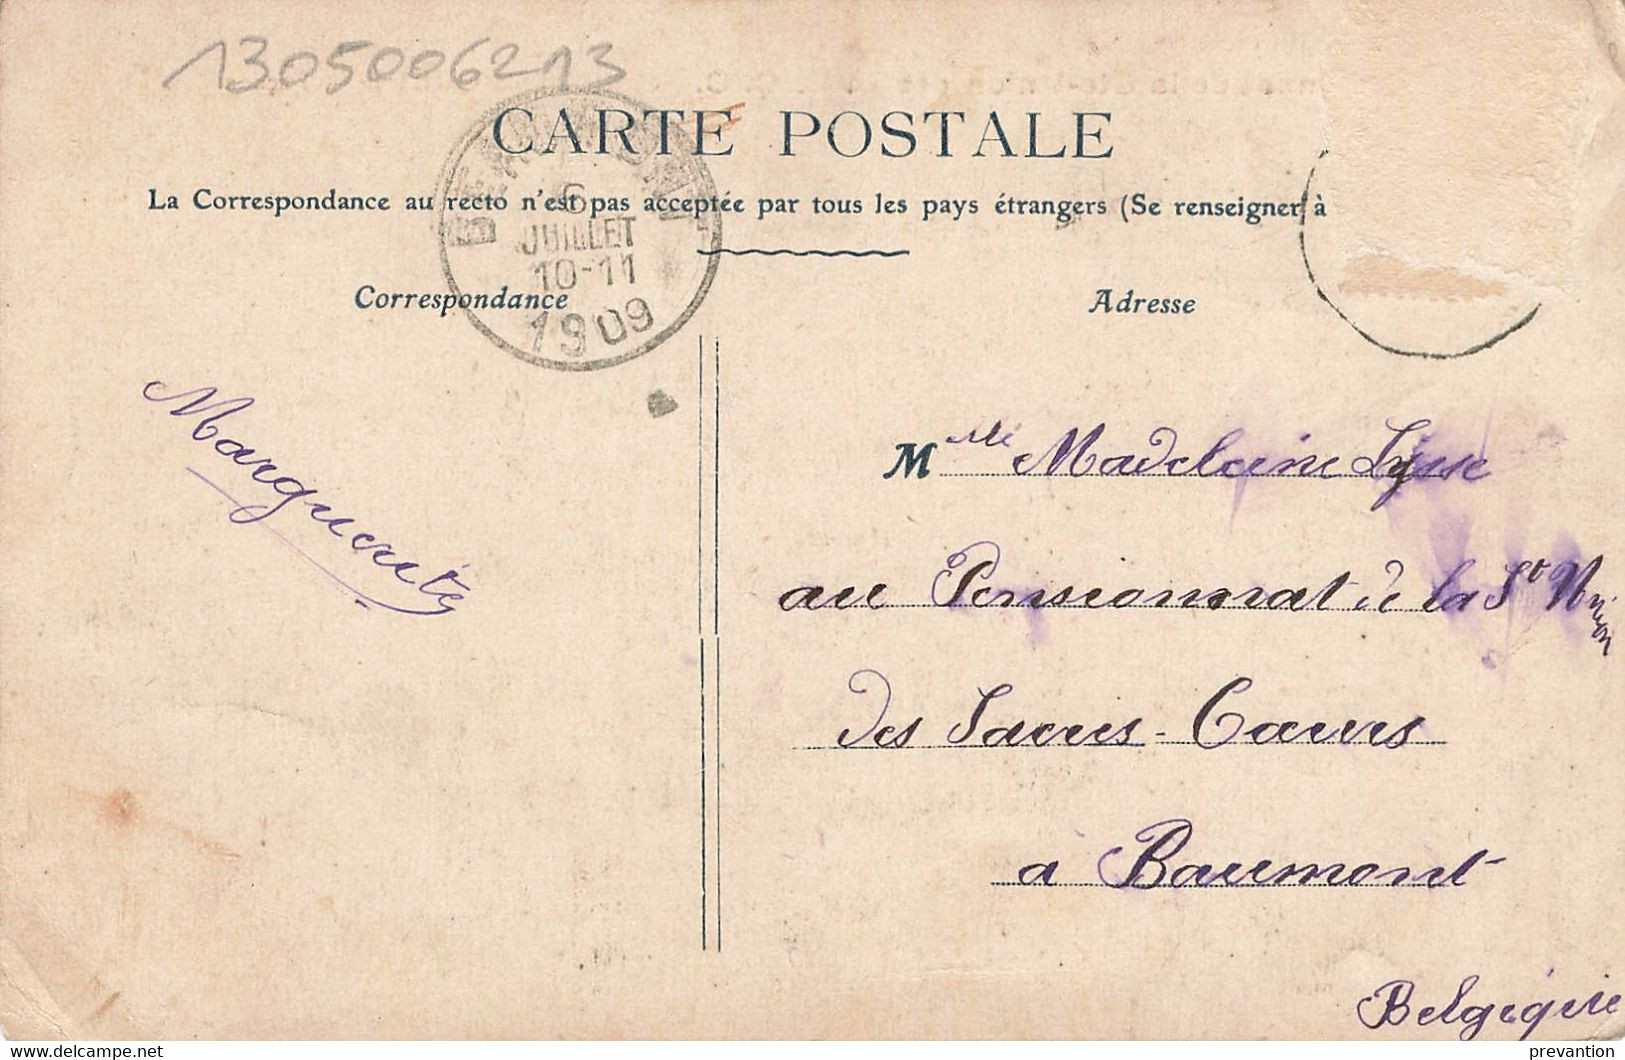 1305006213
CARTE POSTALE
La Correspondance au recto n'est pas acceptée par tous les pays étrangers (Se renseigner à
6
JUILLET
10-11
1909
Correspondance
Adresse
Marguerite
Mlle Madeleine Lysse
au Pensionnat de la Ste Union
des Sacrés-Coeurs
à Beaumont
Belgique
www.delcampe.net
prevantion